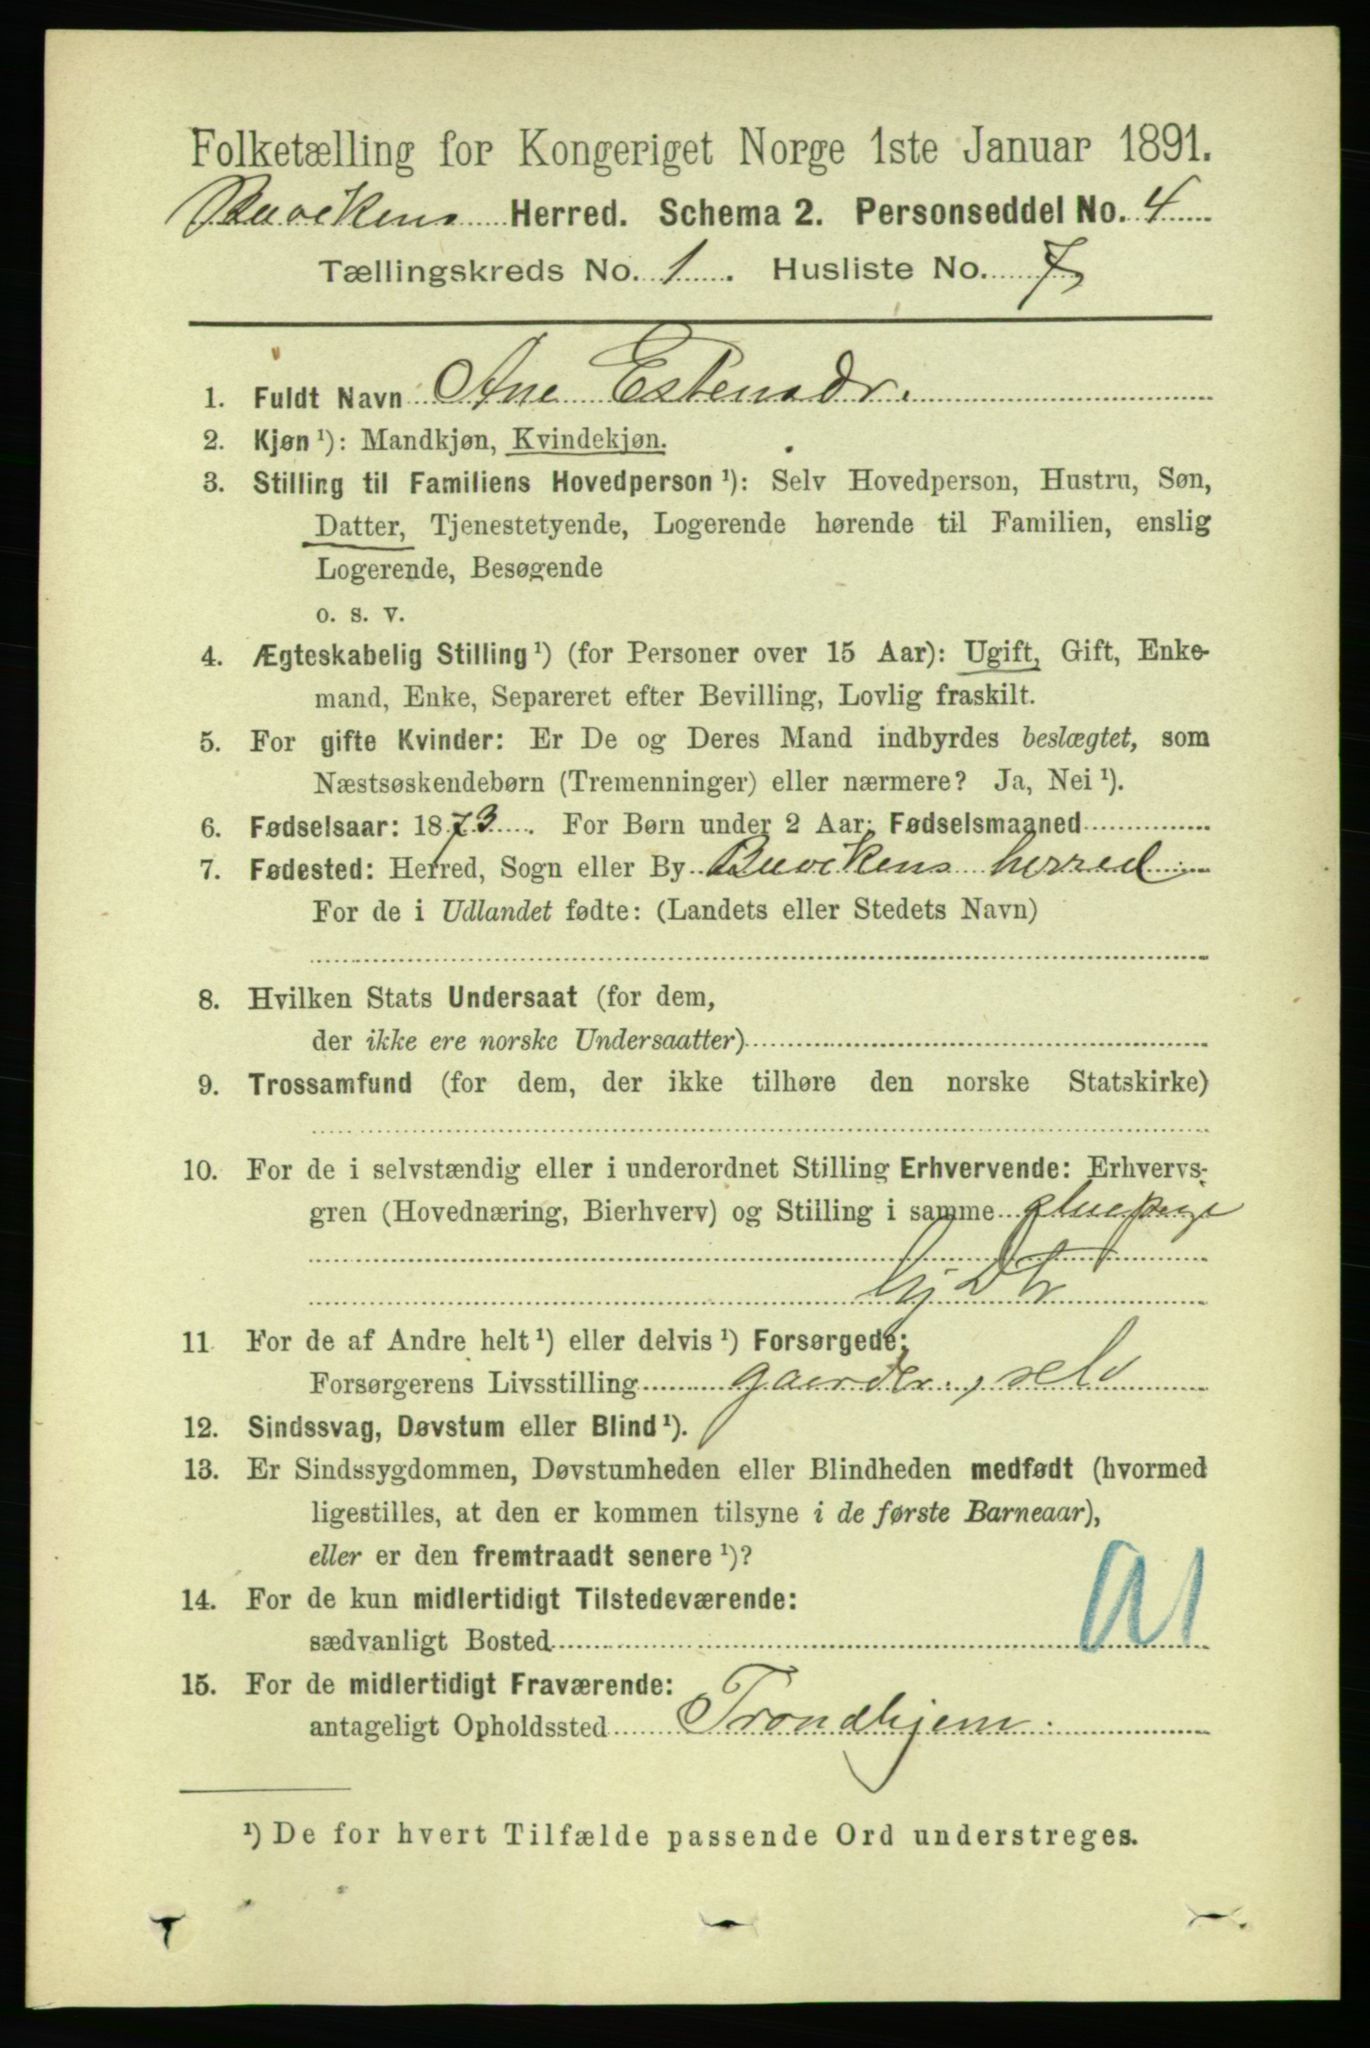 Folketælling for Kongeriget Norge 1ste Januar 1891.
Buvikens Herred. Schema 2. Personseddel No. 4
Tællingskreds No. 1. Husliste No. 7
1. Fuldt Navn Ane Estensdr.
2. Kjøn ¹): Mandkjøn, Kvindekjøn.
3. Stilling til Familiens Hovedperson ¹): Selv Hovedperson, Hustru, Søn,
Datter, Tjenestetyende, Logerende hørende til Familien, enslig
Logerende, Besøgende
o. s. v.
4. Ægteskabelig Stilling ¹) (for Personer over 15 Aar): Ugift, Gift, Enke-
mand, Enke, Separeret efter Bevilling, Lovlig fraskilt.
5. For gifte Kvinder: Er De og Deres Mand indbyrdes beslægtet, som
Næstsøskendebørn (Tremenninger) eller nærmere? Ja, Nei ¹).
6. Fødselsaar: 1873. For Børn under 2 Aar: Fødselsmaaned
7. Fødested: Herred, Sogn eller By Buvikens herred
For de i Udlandet fødte: (Landets eller Stedets Navn)
8. Hvilken Stats Undersaat (for dem,
der ikke ere norske Undersaatter)
9. Trossamfund (for dem, der ikke tilhøre den norske Statskirke)
10. For de i selvstændig eller i underordnet Stilling Erhvervende: Erhvervs-
gren (Hovednæring, Bierhverv) og Stilling i samme
11 For de af Andre helt ¹) eller delvis ¹) Forsørgede:
Forsørgerens Livsstilling gaardbr., selv
12. Sindssvag, Døvstum eller Blind ¹).
13. Er Sindssygdommen, Døvstumheden eller Blindheden medfødt (hvormed
ligestilles, at den er kommen tilsyne i de første Barneaar),
eller er den fremtraadt senere ¹)?
14. For de kun midlertidigt Tilstedeværende:
sædvanligt Bosted
15. For de midlertidigt Fraværende:
antageligt Opholdssted Trondhjem.
¹) De for hvert Tilfælde passende Ord understreges.